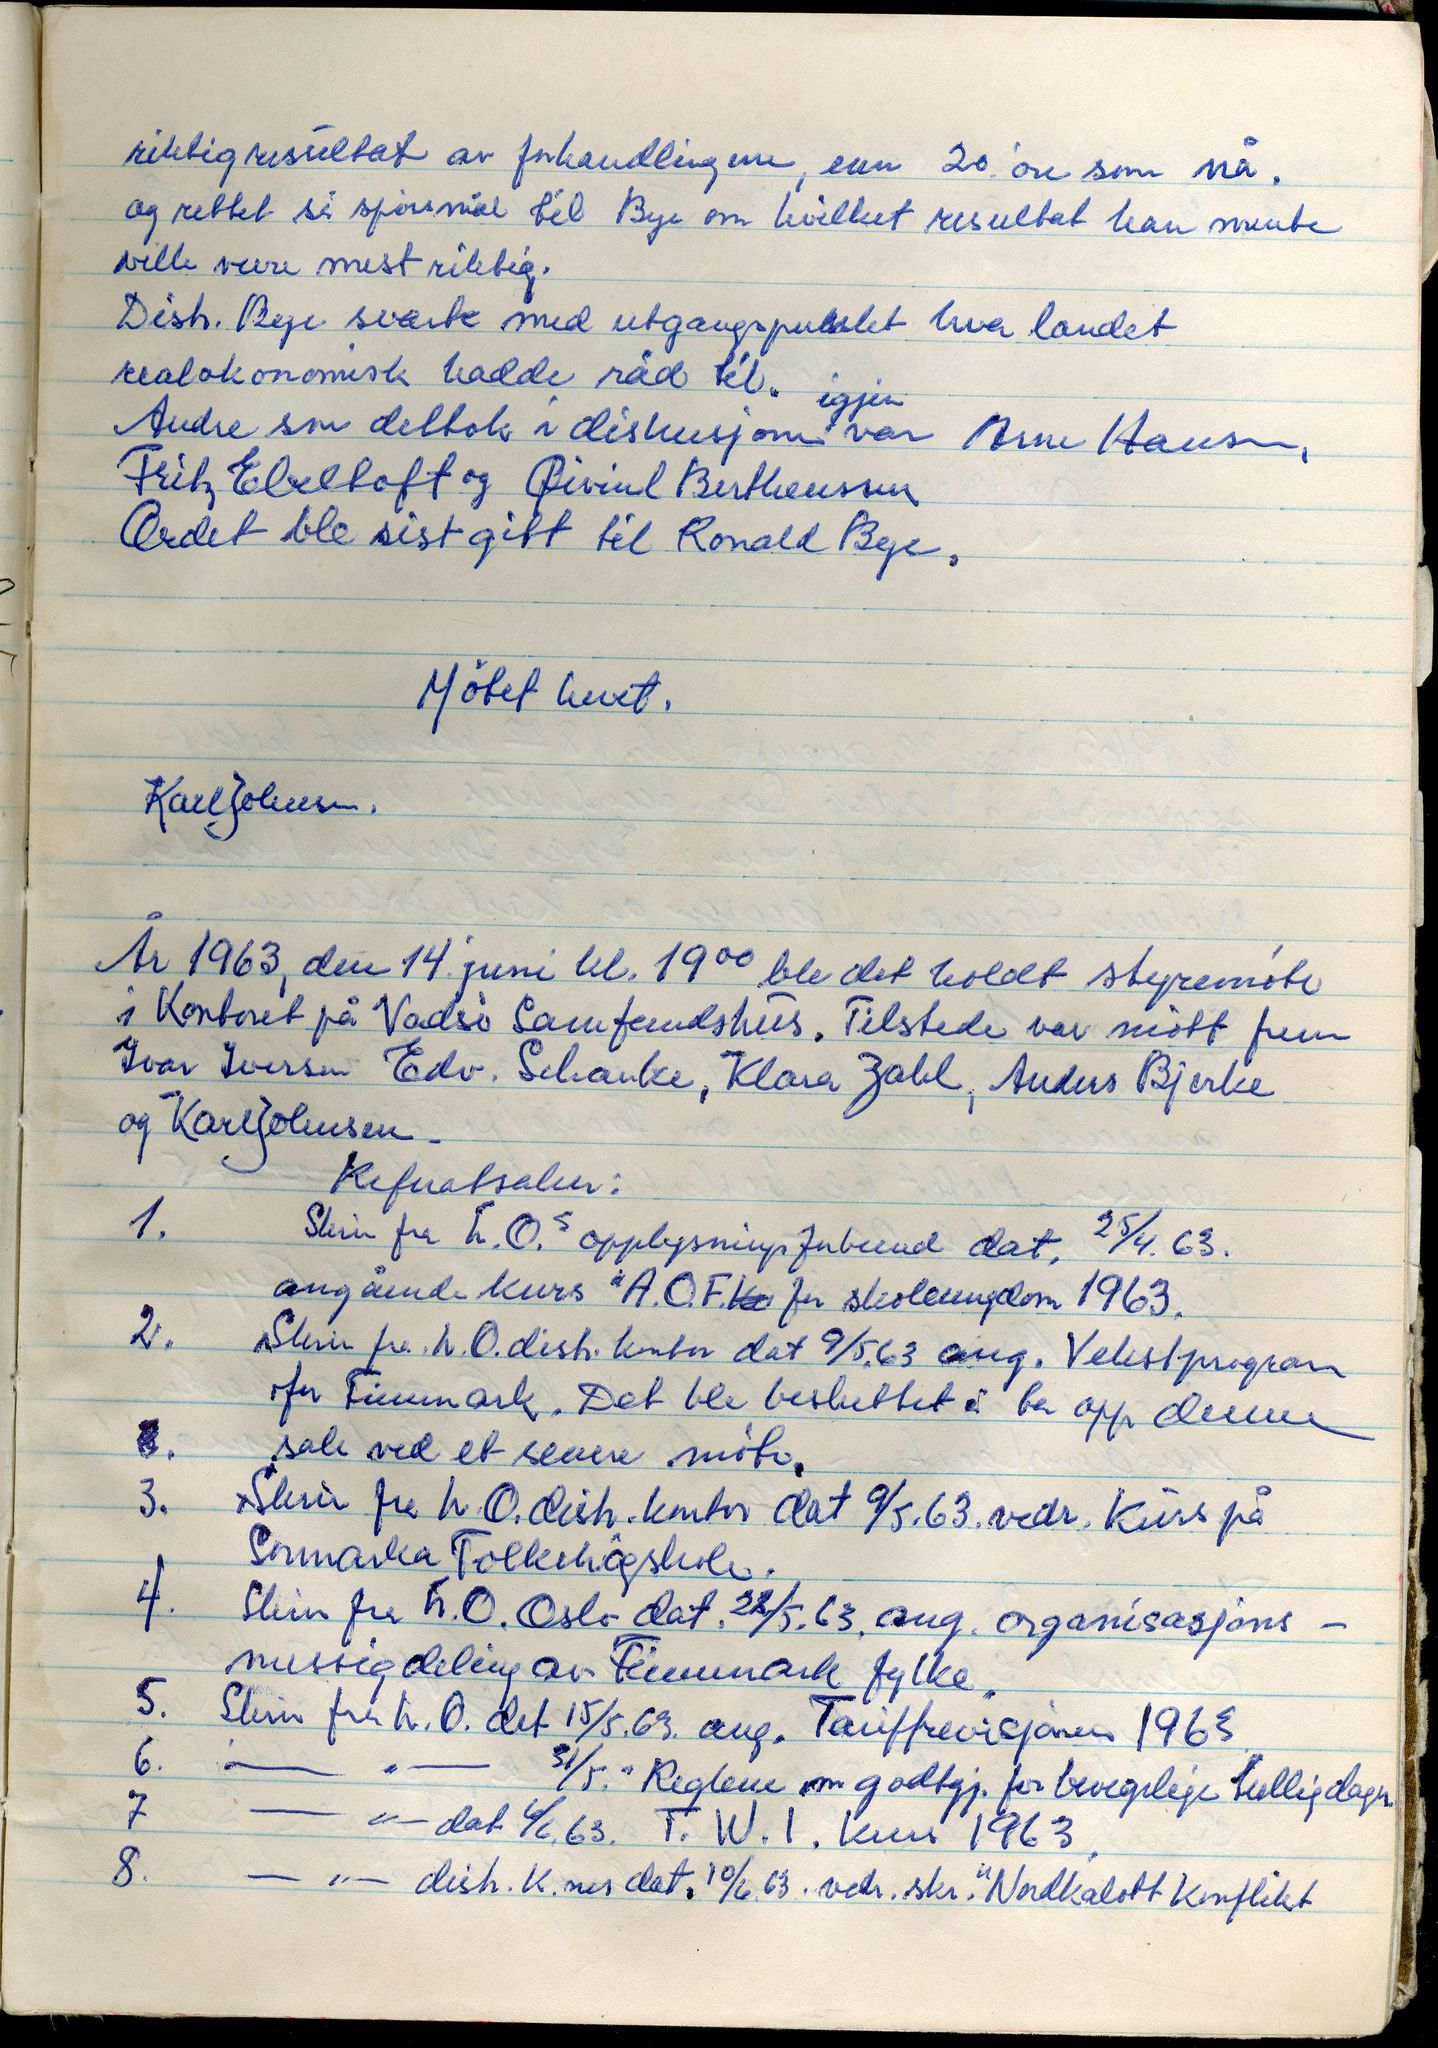 riktig resultat av forhandlingene, enn 20 øre som nå.
og rettet så spörsmål til Bye om hvilket resultat han mente
ville være mest riktig.
Distr. Bye svarte med utgangspunktet hva landet
realøkonomisk hadde råd til.
igjen
Andre som deltok i diskusjonen var Arne Hansen,
Fritz Ebeltoft og Øivind Bertheussen
Ordet ble sist gitt til Ronald Bye.
Mötet hevet.
Karl Johnsen.
År 1963, den 14 juni kl. 19⁰⁰ ble det holdt styremöte
i Kontoret på Vadsö Samfundshus. Tilstede var mött frem
Ivar Iversen Edv. Schanke, Klara Zahl, Anders Bjerke
og Karl Johnsen
Referatsaker:
1. Skriv fra L.O.s opplysningsforbund dat. 25/4.63.
angående kurs "A.O.F. for skoleungdom 1963.
2. Skriv fra L.O. distr. kontor dat 9/5.63 ang. Vekstprogram
for Finnmark. Det ble besluttet å ta opp denne
sak ved et senere möte.
3. Skriv fra L.O. distr. kontor dat 9/5.63. vedr. Kurs på
Sormarka Folkehögskole.
4. Skriv fra L.O. Oslo dat. 22/5.63. ang. organisasjons -
messig deling av Finnmark fylke.
5. Skriv fra L.O. dat 15/5.63. ang. Tariffrevisjonen 1963
6. — " — 31/5. " Reglene om godtgj. for bevegelige helligdager.
7 — " — dat 4/6.63. T.W.I. kurs 1963.
8. — " — distr. K. nes dat. 10/6.63. vedr. skr. "Nordkalott Konflikt